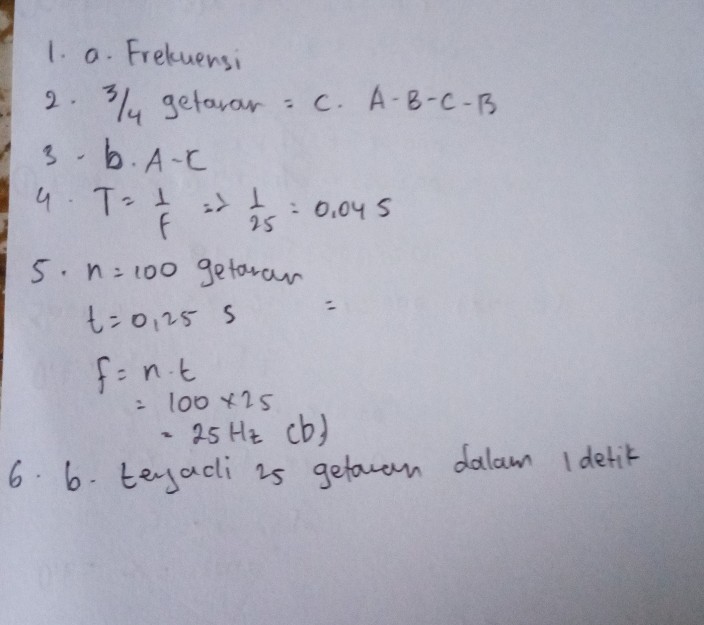 1. a. Frekuensi
2. 3/4 getaran = C. A-B-C-B
3 - b. A-C
4. T = 1/f => 1/25 = 0,04 s
5. n = 100 getaran
t = 0,25 s =
f = n.t
= 100 x 25
= 25 Hz (b)
6. b. terjadi 25 getaran dalam 1 detik